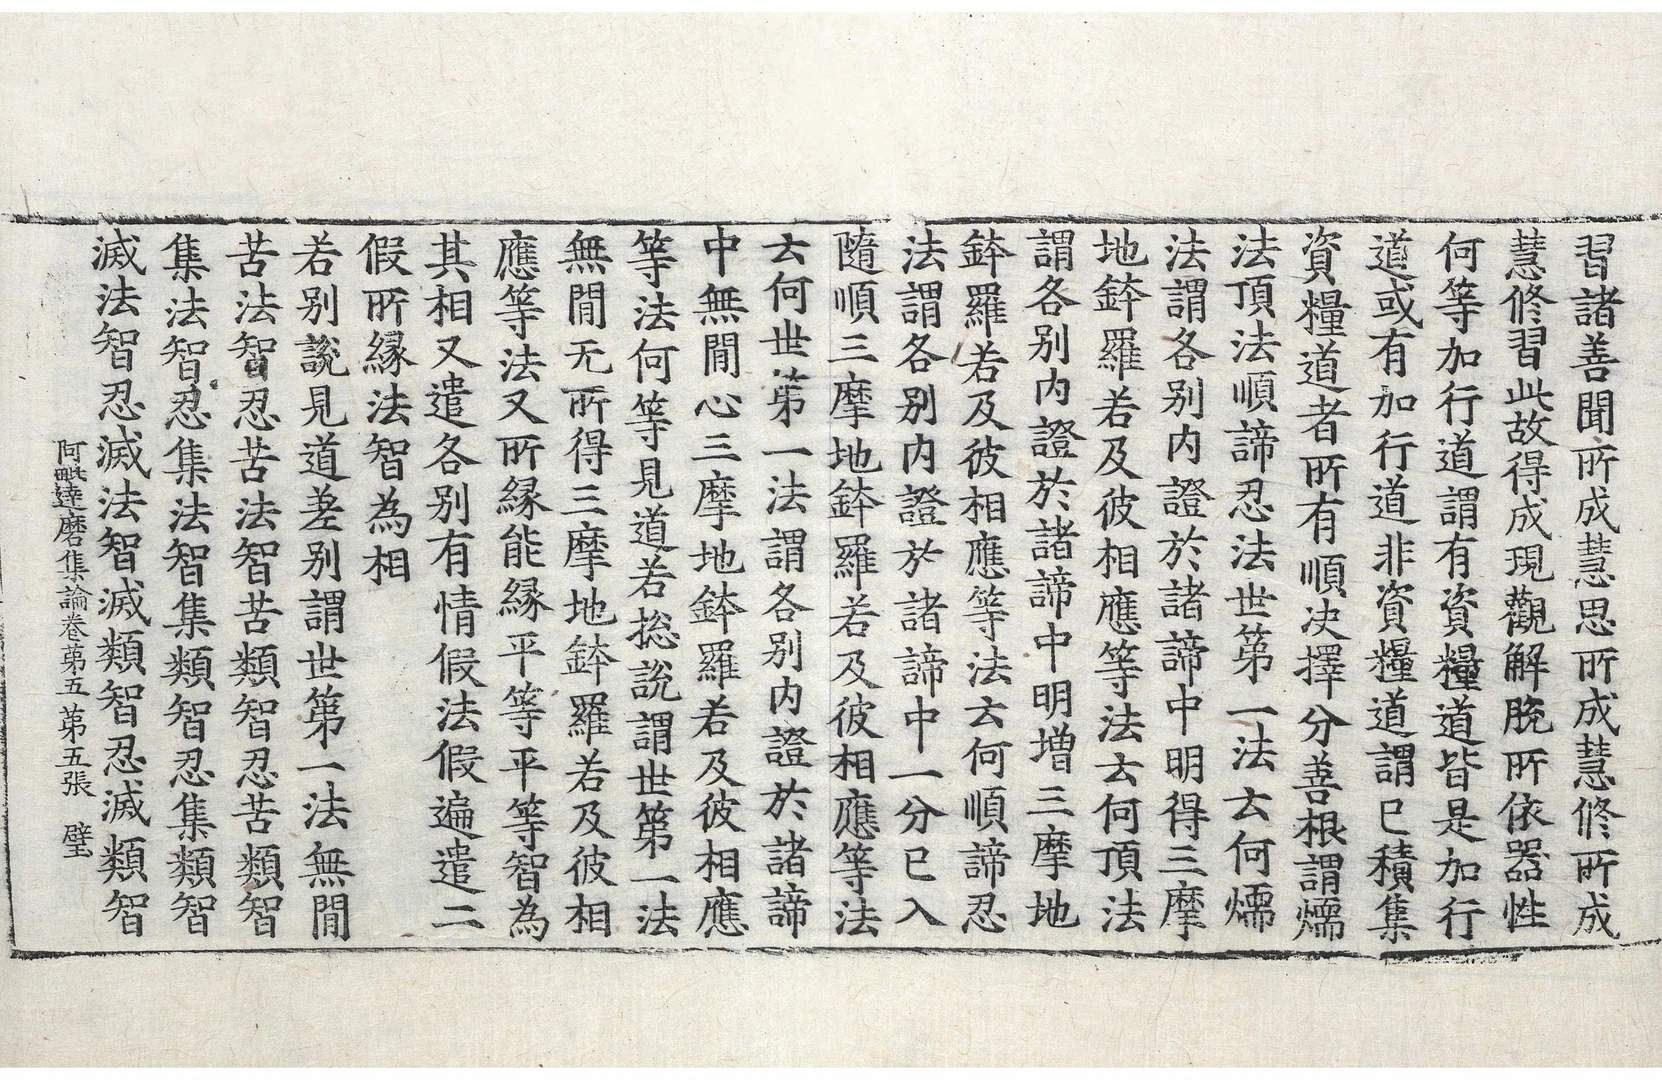 習諸善聞所成慧思所成慧修所成
慧修習此故得成現觀解脫所依器性
何等加行道謂有資糧道皆是加行
道或有加行道非資糧道謂已積集
資糧道者所有順決擇分善根謂煗
法頂法順諦忍法世第一法云何煗
法謂各別內證於諸諦中明得三摩
地鉢羅若及彼相應等法云何頂法
謂各別內證於諸諦中明增三摩地
鉢羅若及彼相應等法云何順諦忍
法謂各別內證於諸諦中一分已入
隨順三摩地鉢羅若及彼相應等法
云何世第一法謂各別內證於諸諦
中無閒心三摩地鉢羅若及彼相應
等法何等見道若揔說謂世第一法
無閒无所得三摩地鉢羅若及彼相
應等法又所緣能緣平等平等智為
其相又遣各別有情假法假遍遣二
假所緣法智為相
若別說見道差別謂世第一法無閒
苦法智忍苦法智苦類智忍苦類智
集法智忍集法智集類智忍集類智
滅法智忍滅法智滅類智忍滅類智
阿毗達磨集論卷第五　第五張　璧